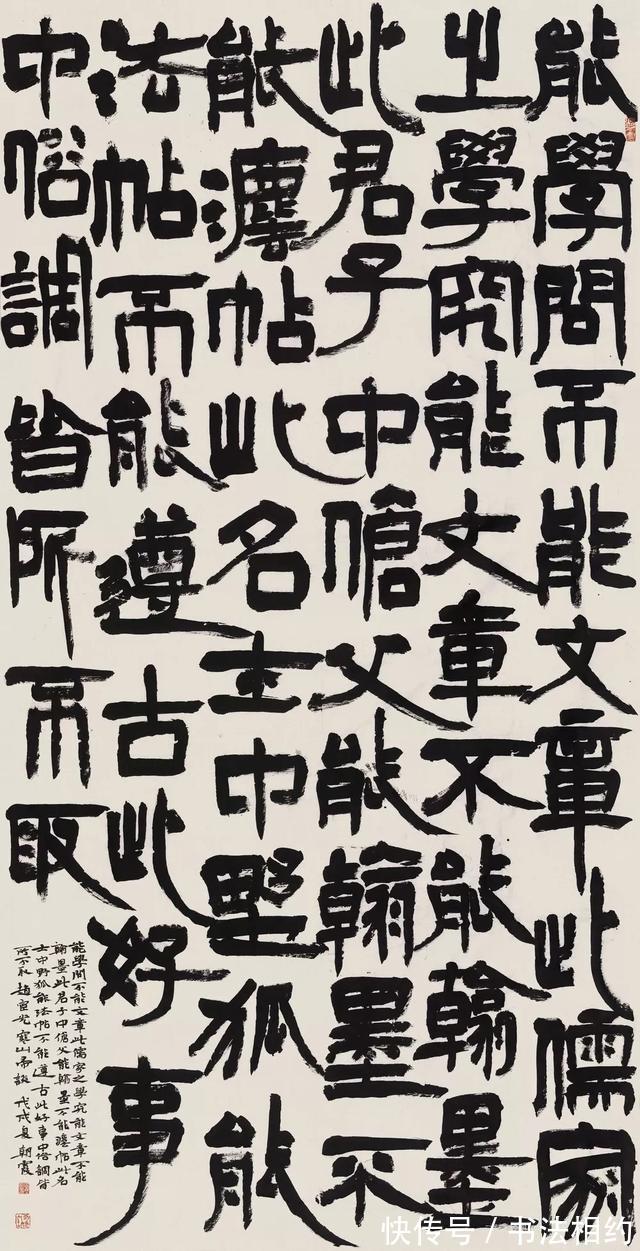 能學問不能文章此儒家
之學究能文章不能翰墨
此君子中傖父能翰墨不
能灋帖此名士中野狐能
法帖不能遵古此好事
中俗調皆所不取
能學問不能文章此儒家之學究能文章不能
翰墨此君子中傖父能翰墨不能灋帖此名
士中野狐能法帖不能遵古此好事中俗調皆
所不取 趙宧光寒山帚談 戊戌夏 朝霞
快传号 / 书法相约